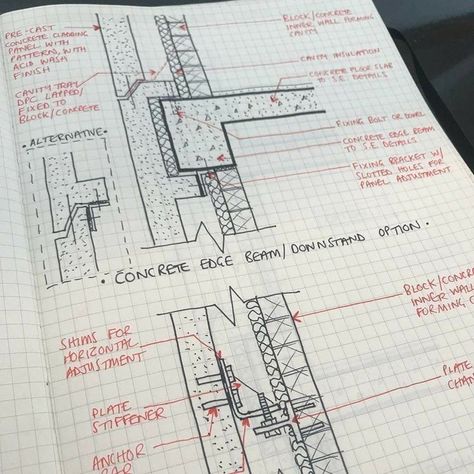 PRE-CAST
CONCRETE CLADDING
PANEL WITH
PATTERN, WITH
ACID WASH
FINISH
CAVITY TRAY
DPC LAPPED/
FIXED TO
BLOCK/CONCRETE
• ALTERNATIVE •
BLOCK/CONCRETE
INNER WALL FORMING
CAVITY
CAVITY INSULATION
CONCRETE FLOOR SLAB
TO S.E. DETAILS
FIXING BOLT OR DOWEL
CONCRETE EDGE BEAM
TO S.E. DETAILS
FIXING BRACKET W/
SLOTTED HOLES FOR
PANEL ADJUSTMENT
• CONCRETE EDGE BEAM/DOWNSTAND OPTION •
SHIMS FOR
HORIZONTAL
ADJUSTMENT
PLATE
STIFFENER
ANCHOR
BLOCK/CON
INNER WALL
FORMING
PLATE
CHAN